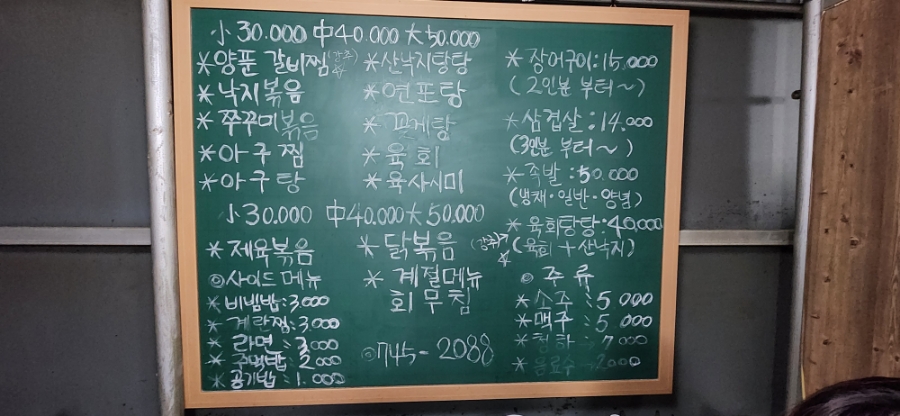 小 30.000 中 40.000 大 50.000
* 양푼 갈비찜 (강추)
* 낙지볶음
* 쭈꾸미볶음
* 아구찜
* 아구탕
* 산낙지탕탕
* 연포탕
* 꽃게탕
* 육회
* 육사시미
小 30.000 中 40.000 大 50.000
* 제육볶음
* 닭볶음 (강추)
* 계절메뉴
회무침
◎ 사이드메뉴
* 비빔밥 : 3000
* 계란찜 : 3.000
* 라면 : 3.000
* 주먹밥 : 2000
* 공기밥 : 1.000
◎ 745-2088
* 장어구이 : 15.000
(2인분 부터~)
* 삼겹살 : 14.000
(3인분 부터~)
* 족발 : 50.000
(냉채·일반·양념)
* 육회탕탕 : 40.000
(육회 + 산낙지)
◎ 주류
* 소주 : 5000
* 맥주 : 5.000
* 청하 : 7000
* 음료수 : 2000